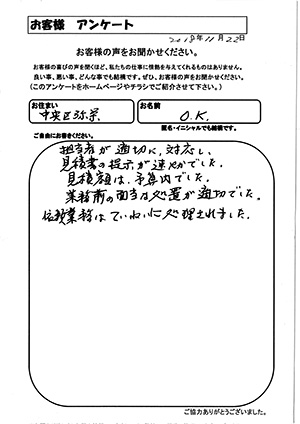 お客様 アンケート
2018年11月22日
お客様の声をお聞かせください。
お客様の喜びの声を聞くほど、私たちの仕事に情熱を与えてくれるものはありません。
良い事、悪い事、どんな事でも結構です。ぜひ、お客様の声をお聞かせください。
(このアンケートをホームページやチラシでご紹介させて下さい。)
お住まい
中央区弥栄
お名前
O.K.
匿名・イニシャルでも結構です。
ご自由にお書きください。
担当者が適切に対応し、
見積書の提示が速やかでした。
見積額は、予算内でした。
業務前の面当な処置が適切でした。
依頼業務はていねいに処理されました。
ご協力ありがとうございました。